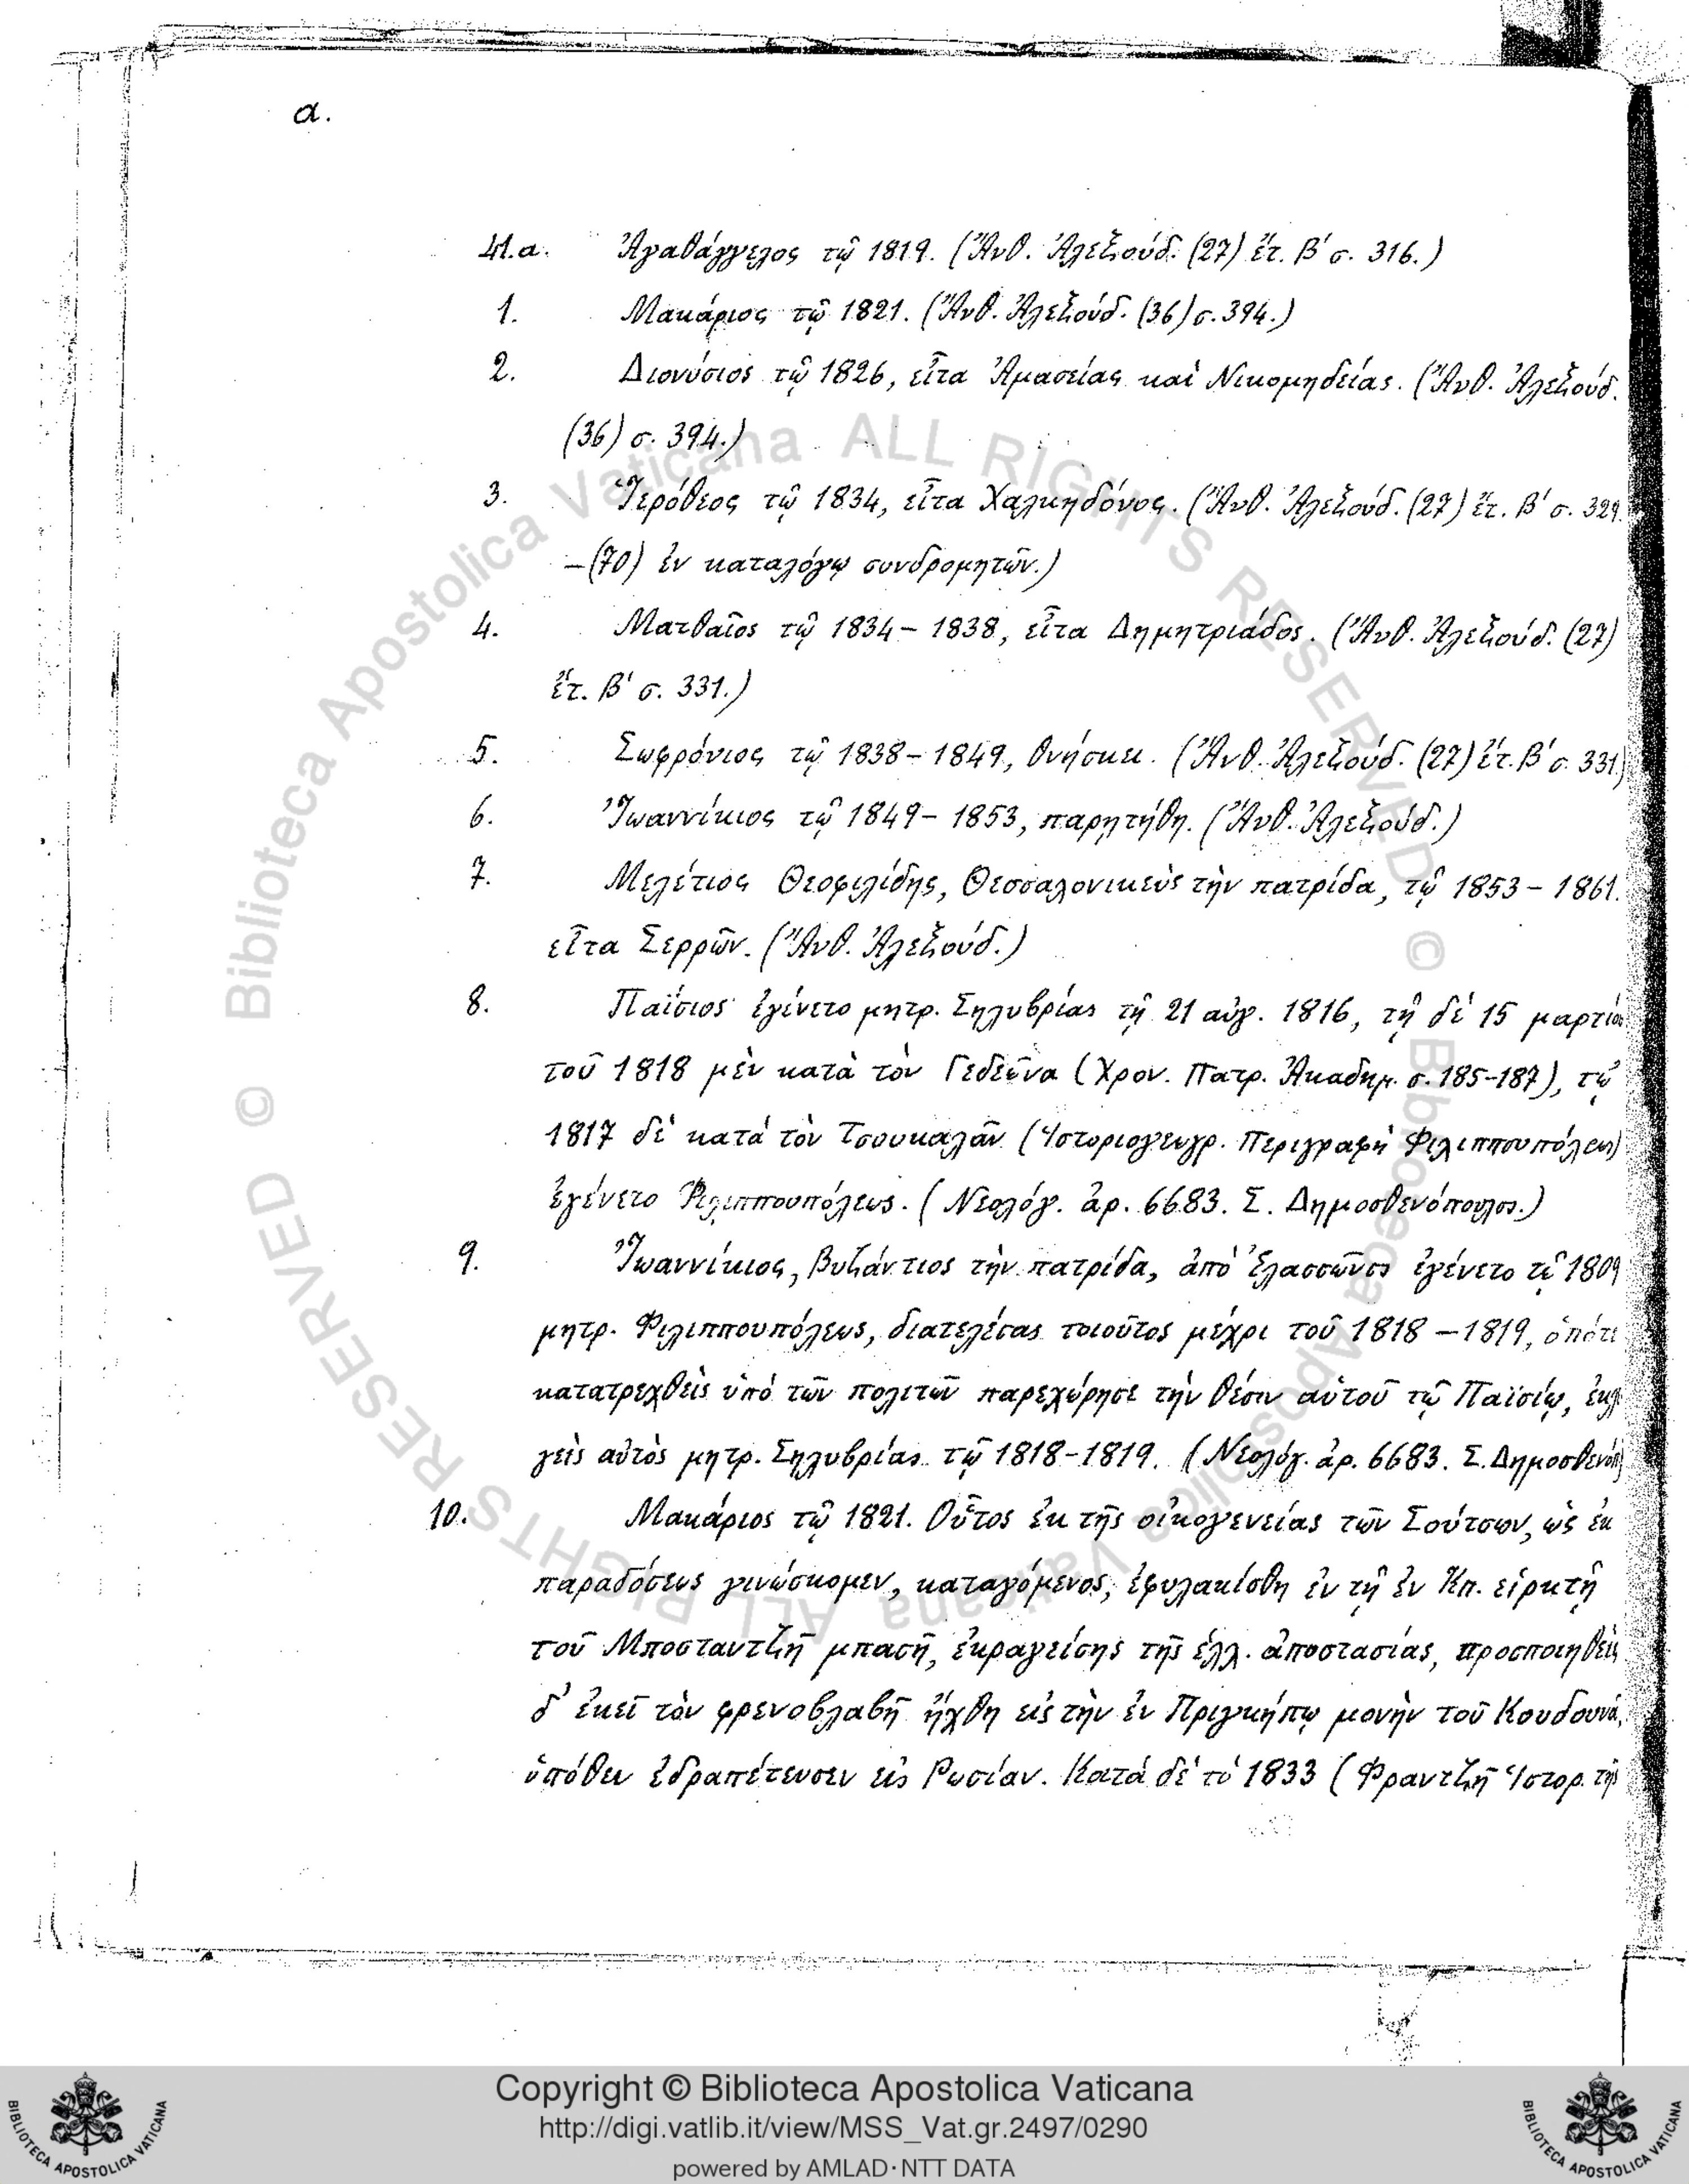 α.
41.α. Ἀγαθάγγελος τῷ 1819. (Ἀνθ. Ἀλεξούδ. (27) ἔτ. β΄ σ. 316.)
1. Μακάριος τῷ 1821. (Ἀνθ. Ἀλεξούδ. (36) σ. 394.)
2. Διονύσιος τῷ 1826, εἶτα Ἀμασείας καὶ Νικομηδείας. (Ἀνθ. Ἀλεξούδ.
(36) σ. 394.)
3. Ἱερόθεος τῷ 1834, εἶτα Χαλκηδόνος. (Ἀνθ. Ἀλεξούδ. (27) ἔτ. β΄ σ. 329.
– (70) ἐν καταλόγῳ συνδρομητῶν.)
4. Ματθαῖος τῷ 1834 – 1838, εἶτα Δημητριάδος. (Ἀνθ. Ἀλεξούδ. (27)
ἔτ. β΄ σ. 331.)
5. Σωφρόνιος τῷ 1838 – 1849, θνήσκει. (Ἀνθ. Ἀλεξούδ. (27) ἔτ. β΄ σ. 331)
6. Ἰωαννίκιος τῷ 1849 – 1853, παρῃτήθη. (Ἀνθ. Ἀλεξούδ.)
7. Μελέτιος Θεοφιλίδης, Θεσσαλονικεὺς τὴν πατρίδα, τῷ 1853 – 1861.
εἶτα Σερρῶν. (Ἀνθ. Ἀλεξούδ.)
8. Παΐσιος ἐγένετο μητρ. Σηλυβρίας τῇ 21 αὐγ. 1816, τῇ δὲ 15 μαρτίου
τοῦ 1818 μὲν κατὰ τὸν Γεδεῶνα (Χρον. Πατρ. Ἀκαδημ. σ. 185-187), τῷ
1817 δὲ κατὰ τὸν Τσουκαλᾶν (Ἱστοριογεωγρ. Περιγραφὴ Φιλιππουπόλεως)
ἐγένετο Φιλιππουπόλεως. (Νεολόγ. ἀρ. 6683. Σ. Δημοσθενόπουλος.)
9. Ἰωαννίκιος, Βυζάντιος τὴν πατρίδα, ἀπὸ Ἐλασσῶνος ἐγένετο τῷ 1809
μητρ. Φιλιππουπόλεως, διατελέσας τοιοῦτος μέχρι τοῦ 1818 – 1819, ὁπότε
κατατρεχθεὶς ὑπὸ τῶν πολιτῶν παρεχώρησε τὴν θέσιν αὐτοῦ τῷ Παϊσίῳ, ἐκλ
γεὶς αὐτὸς μητρ. Σηλυβρίας τῷ 1818-1819. (Νεολόγ. ἀρ. 6683. Σ. Δημοσθενόπ)
10. Μακάριος τῷ 1821. Οὗτος ἐκ τῆς οἰκογενείας τῶν Σούτσων, ὡς ἐκ
παραδόσεως γινώσκομεν, καταγόμενος, ἐφυλακίσθη ἐν τῇ ἐν Κπ. εἱρκτῇ
τοῦ Μποσταντζῆ μπασῆ, ἐκραγείσης τῆς ἑλλ. ἀποστασίας, προσποιηθεὶς
δ' ἐκεῖ τὸν φρενοβλαβῆ ἤχθη εἰς τὴν ἐν Πριγκήπῳ μονὴν τοῦ Κουδουνᾶ,
ὁπόθεν ἐδραπέτευσεν εἰς Ρωσίαν. Κατὰ δὲ τὸ 1833 (Φραντζῆ Ἱστορ. τῆς
© Biblioteca Apostolica Vaticana ALL RIGHTS RESERVED © Biblioteca Apostolica Vaticana ALL RIGHTS RESERVED
Copyright © Biblioteca Apostolica Vaticana
http://digi.vatlib.it/view/MSS_Vat.gr.2497/0290
powered by AMLAD·NTT DATA
BIBLIOTECA APOSTOLICA VATICANA
BIBLIOTECA APOSTOLICA VATICANA